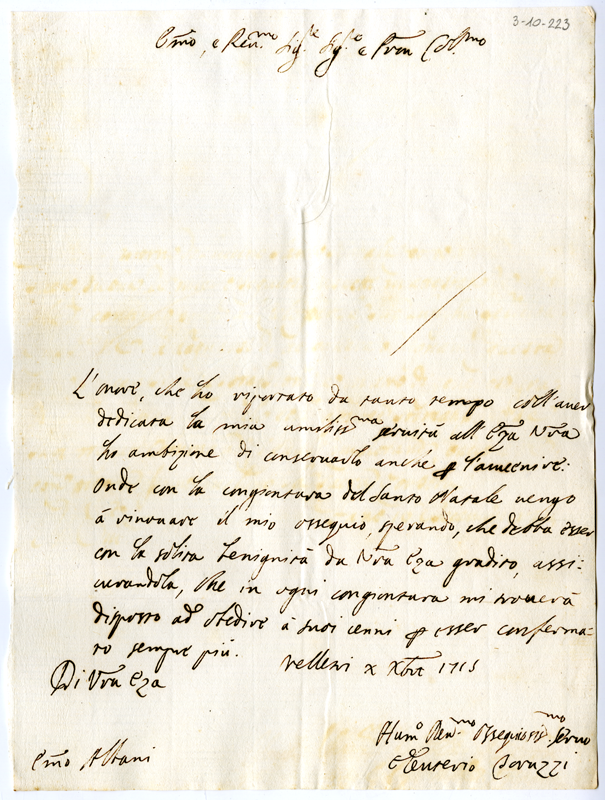 3-10-223
Em̃o, e Reu.mo Sig.re Sig.re e Pron Col.mo
L'onore, che ho riportato da tanto tempo coll'auer
dedicata la mia umiliss.ma seruitù all'Eza Vra
ho ambizione di conseruarlo anche p l'auuenire:
Onde con la congiontura del Santo Natale uengo
à rinouare il mio ossequio, sperando, che debba esser
con la solita benignità da Vra Eza gradito, assi-
curandola, che in ogni congiontura mi trouerà
disposto ad obedire à suoi cenni p esser conferma-
to sempre più. Velletri x Xbre 1715
Di Vra Eza
Hum.o Deu.mo Ossequiosis.mo Seruo
Em̃o Albani
Eleuterio